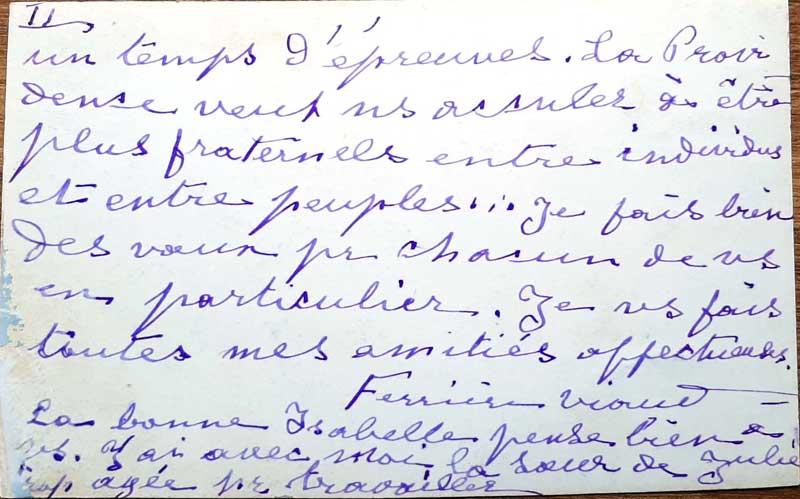 II
un temps d'épreuves. La Provi
dense veut ns acculer à être
plus fraternels entre individus
et entre peuples... Je fais bien
des vœux pr chacun de vs
en particulier. Je vs fais
toutes mes amitiés affectueuses.
Ferrière
La bonne Isabelle pense bien à
vs. J'ai avec moi la sœur de Julie
trop âgée pr travailler